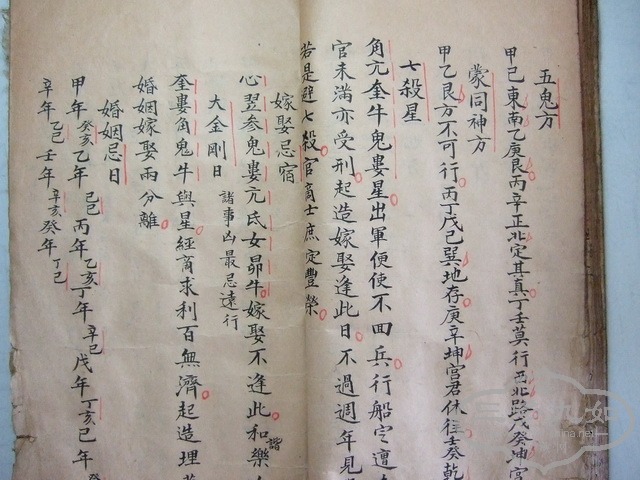 五鬼方
甲己東南乙庚艮丙辛正北定其真丁壬莫行西北路戊癸坤宮
蒙同神方
甲乙艮方不可行丙丁戊己巽地存庚辛坤宮君休往壬癸乾
七殺星
角亢奎牛鬼婁星出軍便使不回兵行船定遭
官未滿亦受刑起造嫁娶逢此日不過週年見
若是避七殺官商士庶定豐榮
嫁娶忌宿
心翌參鬼婁亢氐女昴牛嫁娶不逢此和樂諧
大金剛日 諸事凶最忌遠行
奎婁角鬼牛與星經商求利百無濟起造埋
婚姻嫁娶兩分離
婚姻忌日
甲年癸亥乙年己巳丙年乙亥丁年辛巳戊年丁亥己年癸
辛年乙巳壬年辛亥癸年丁巳